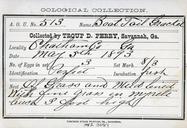 OOLOGICAL COLLECTION.
A. O. U. No. 513. Boat Tail Grackle
Collected by TROUP D. PERRY, Savannah, Ga.
Locality Chatham Co Ga
Date May 8th 1893
No. of Eggs in set 3 Set Mark 3/3
Identity Perfect Incubation fresh
Nest of Grass and Mud lined
With fine Grass in myrtle
bush 3 feet high